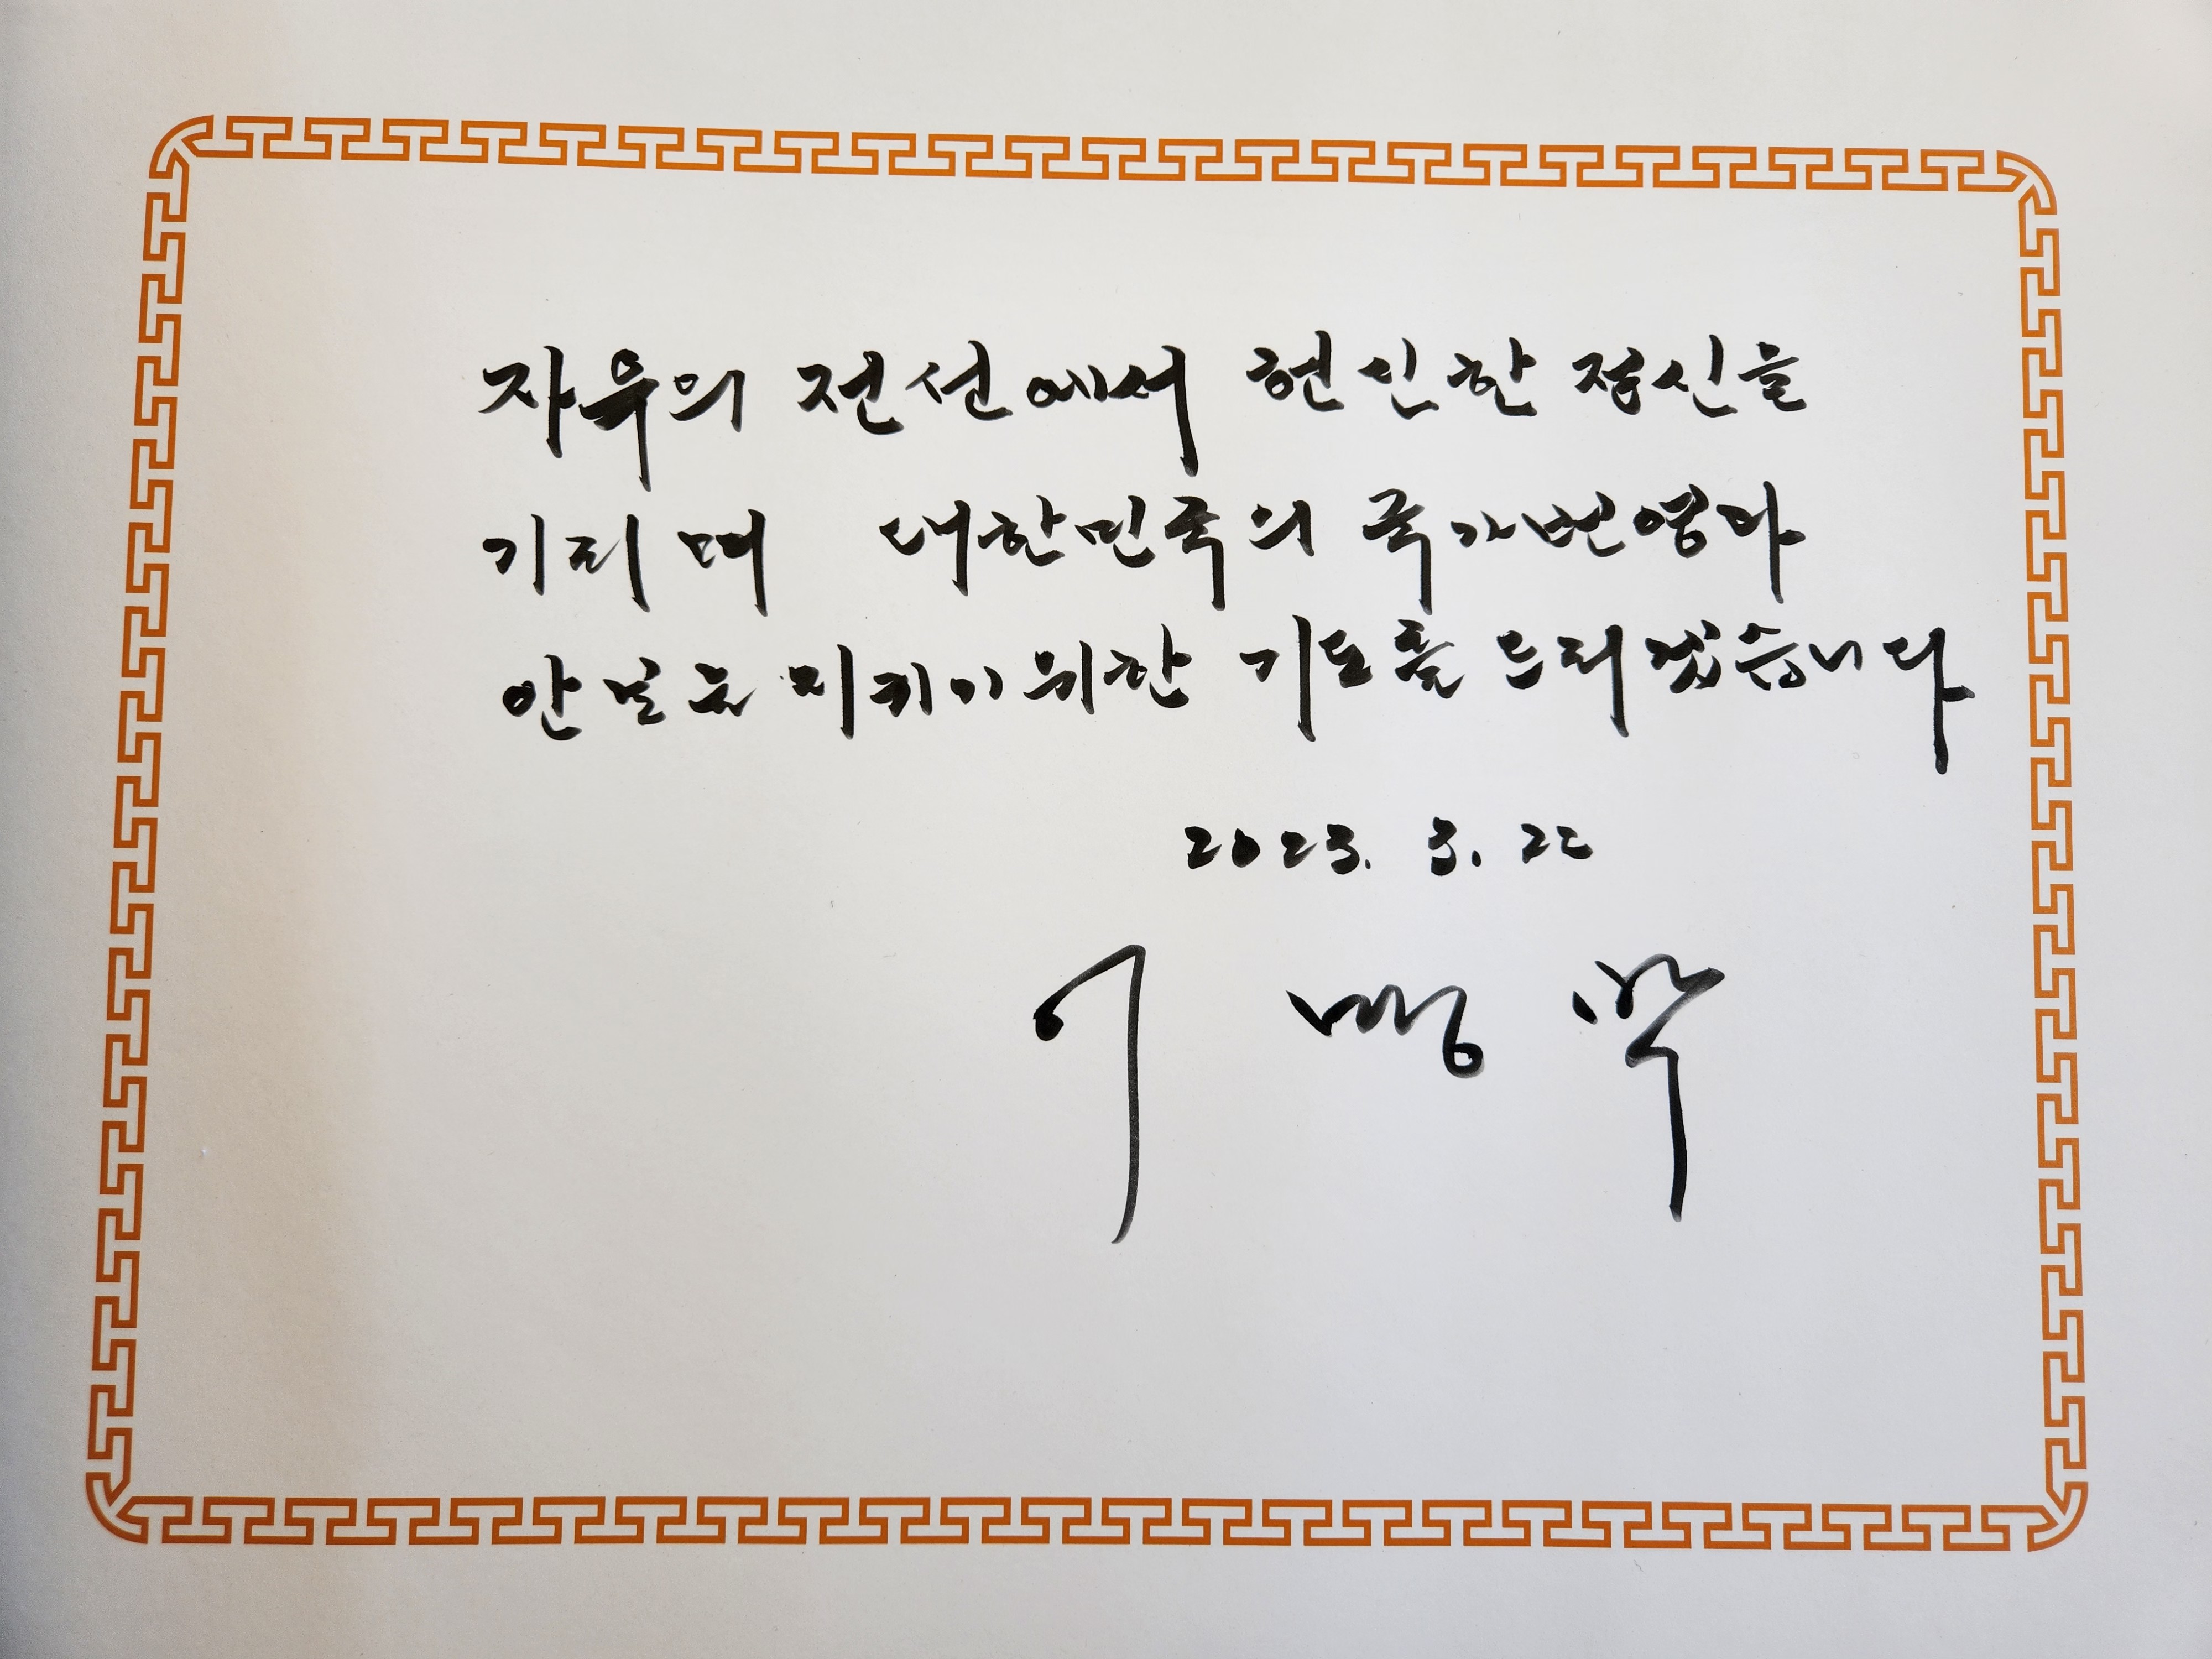 자유의 전선에서 헌신한 정신을
기리며 대한민국의 국가번영과
안보를 지키기 위한 기도를 드리겠습니다
2023. 3. 22
이 명 박